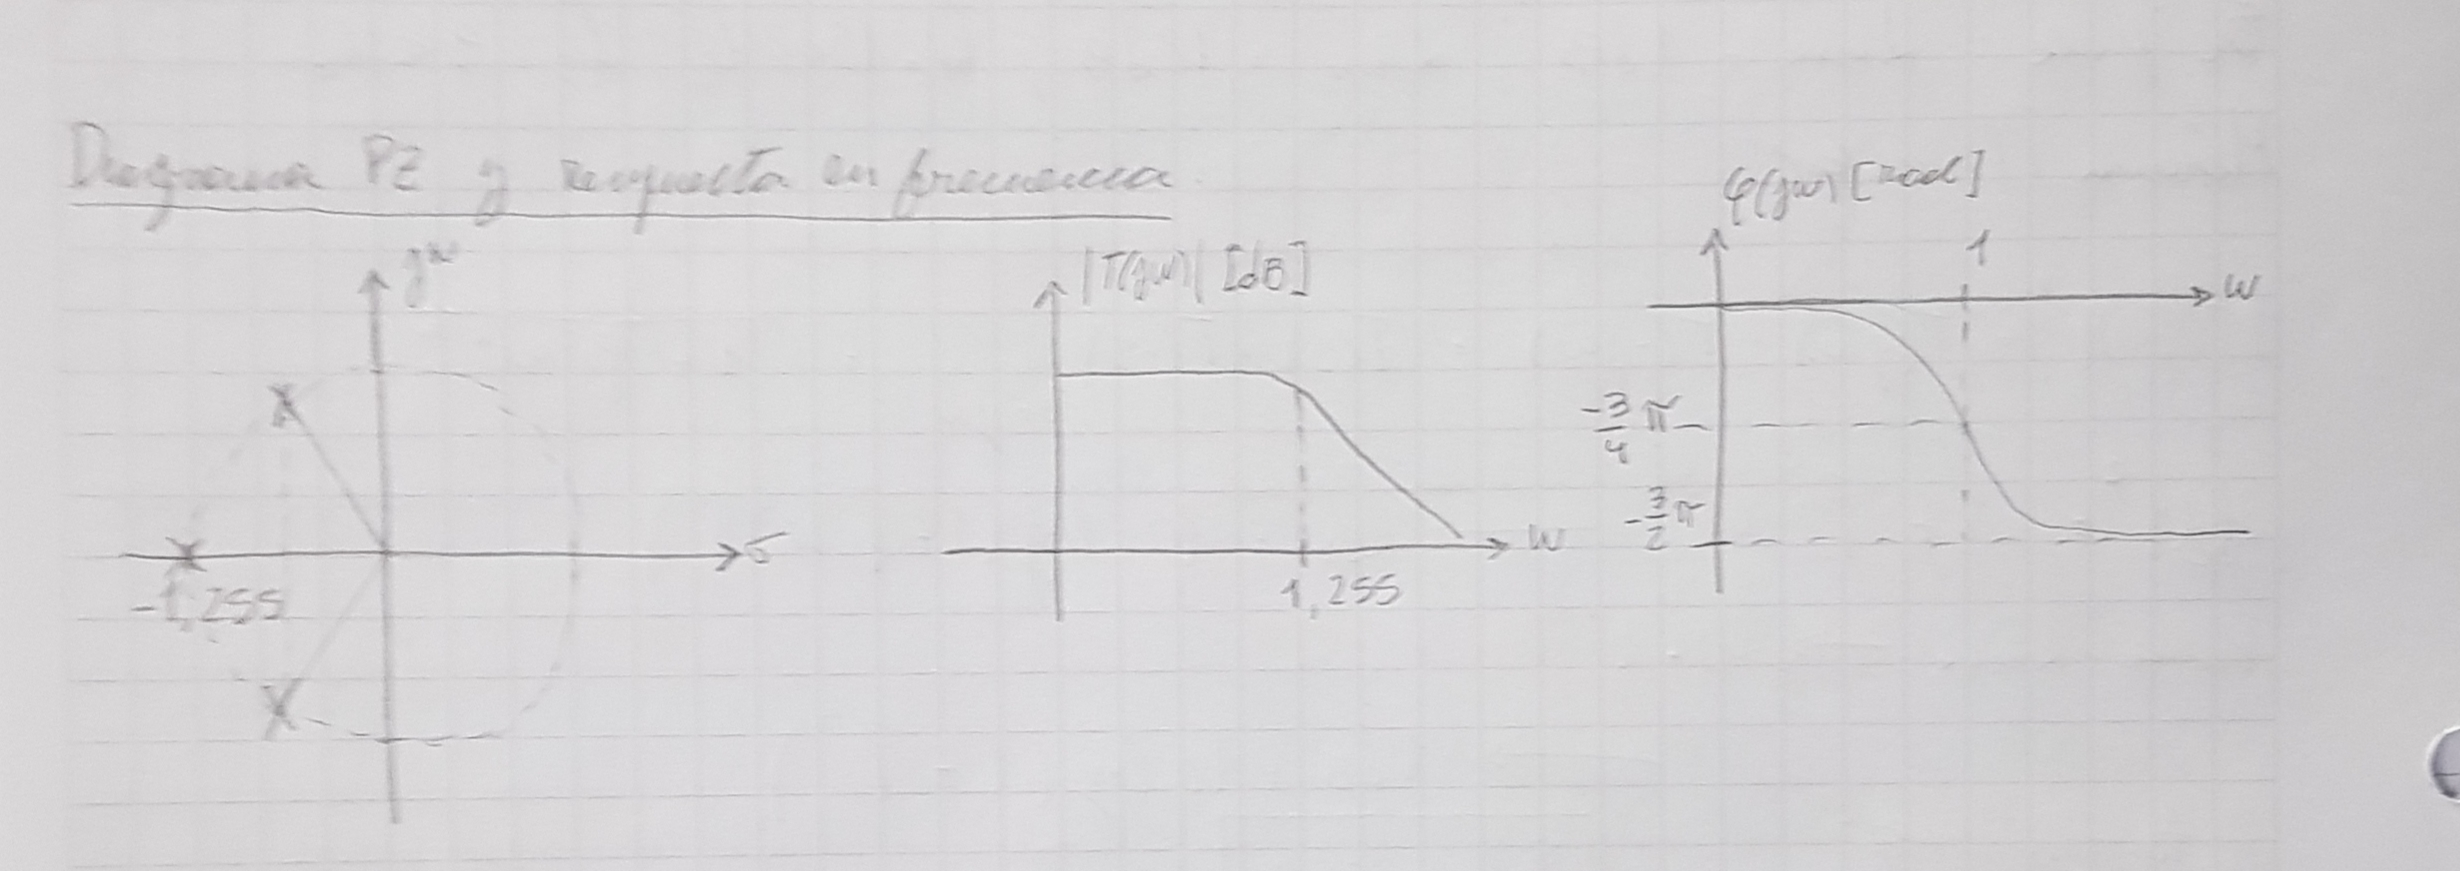 Diagrama PZ y respuesta en frecuencia
jw
σ
-1,255
|T(jw)| [dB]
w
1,255
φ(jw) [rad]
1
w
-3/4 π
-3/2 π